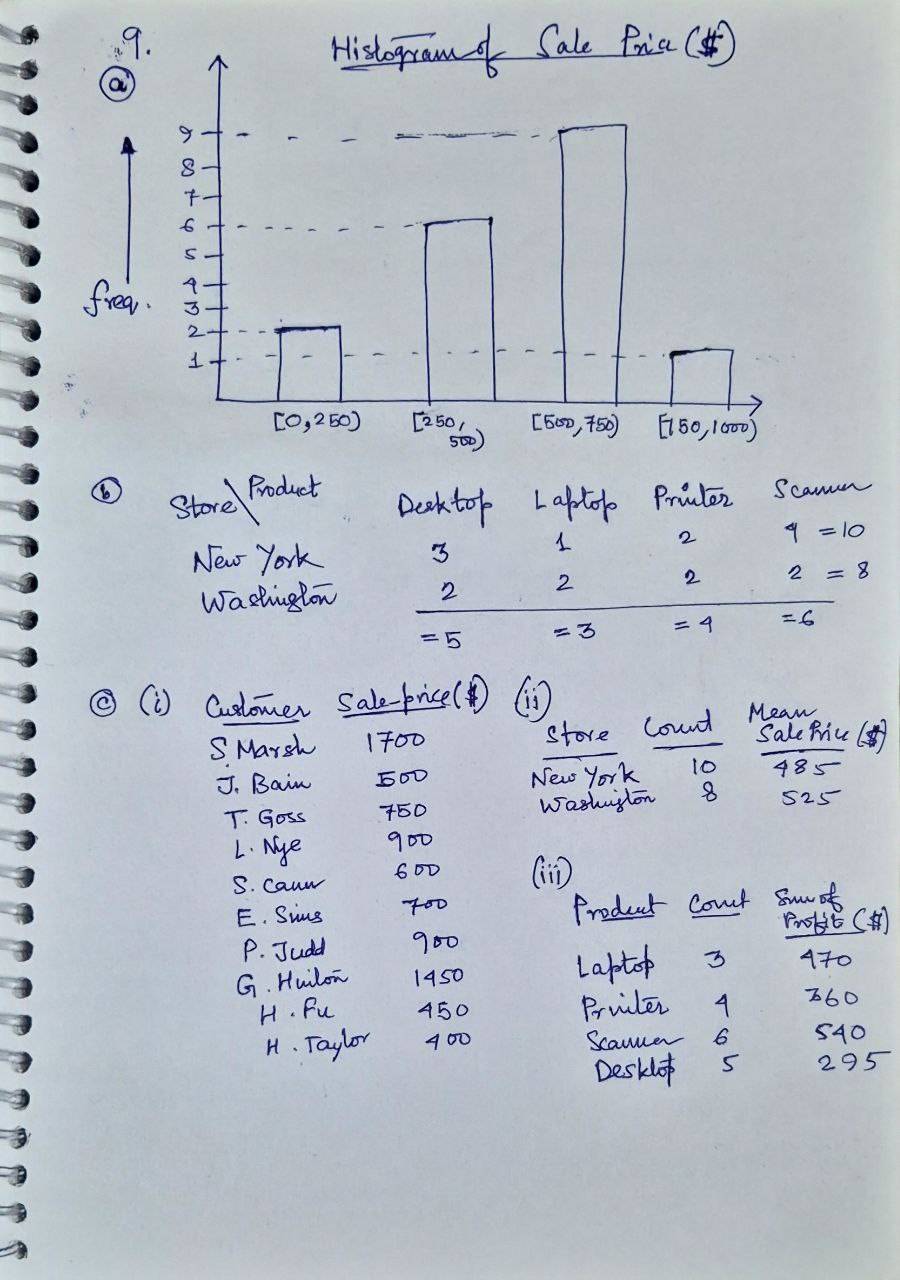 9.
Histogram of Sale Price ($)
(a)
9
8
7
6
5
4
3
2
1
freq.
[0,250)
[250,
500)
[500,750)
[750,1000)
(b)
Store\Product Desktop Laptop Printer Scanner
New York 3 1 2 4 =10
Washington 2 2 2 2 = 8
=5 =3 =4 =6
(c) (i) Customer Sale-price($)
S. Marsh 1700
J. Bain 500
T. Goss 750
L. Nye 900
S. Cann 600
E. Sims 700
P. Judd 900
G. Hinton 1450
H. Fu 450
H. Taylor 400
(ii)
Store Count Mean
Sale Price ($)
New York 10 485
Washington 8 525
(iii)
Product Count Sum of
Profit ($)
Laptop 3 470
Printer 4 360
Scanner 6 540
Desktop 5 295